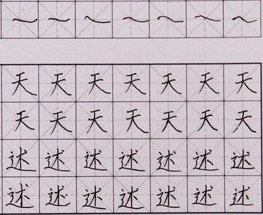 天天天天天天天
天天天天天天天
述述述述述述述
述述述述述述述